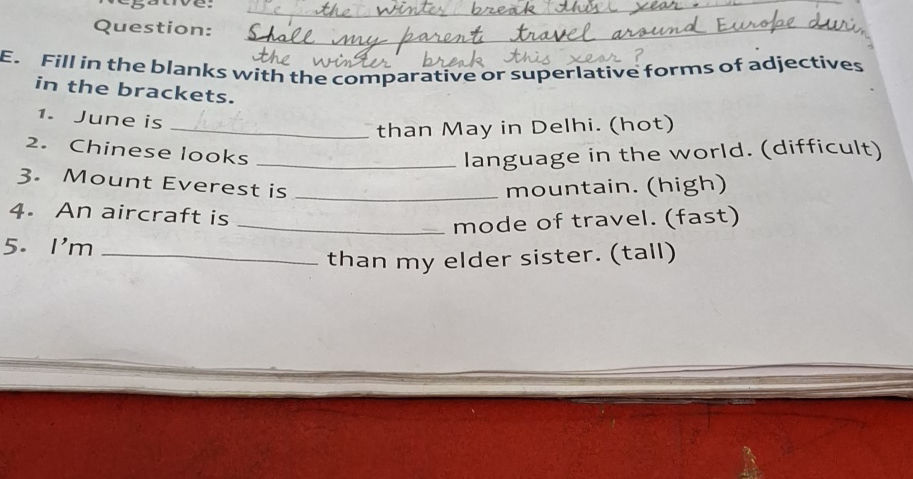 Negative: the winter break this year.
Question: Shall my parents travel around Europe durin
the winter break this year?
E. Fill in the blanks with the comparative or superlative forms of adjectives
in the brackets.
1. June is ____________ than May in Delhi. (hot)
2. Chinese looks ____________ language in the world. (difficult)
3. Mount Everest is ____________ mountain. (high)
4. An aircraft is ____________ mode of travel. (fast)
5. I'm ____________ than my elder sister. (tall)